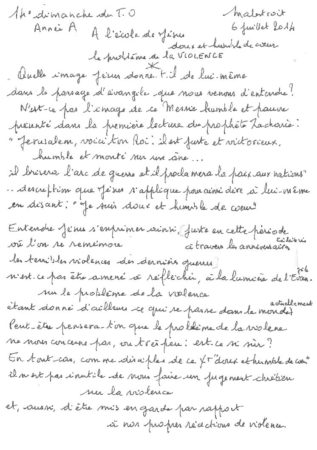 14e dimanche du T.O
Malestroit
Année A
6 juillet 2014
A l'école de Jésus
doux et humble de cœur
le problème de la VIOLENCE
*
Quelle image Jésus donne-t-il de lui-même
dans le passage d'évangile que nous venons d'entendre?
N'est-ce pas l'image de ce Messie humble et pauvre
présenté dans la première lecture du prophète Zacharie:
"Jérusalem, voici ton Roi: il est juste et victorieux,
humble et monté sur une âne...
il brisera l'arc de guerre et il proclamera la paix aux nations"
.. description que Jésus s'applique pour ainsi dire à lui-même
en disant: "Je suis doux et humble de cœur"
Entendre Jésus s'exprimer ainsi, juste en cette période
où l'on se remémore à travers les anniversaires célébrés
les terribles violences des dernières guerres
n'est-ce pas être amené à réfléchir, à la lumière de l'Evan-
gile
sur le problème de la violence
étant donné d'ailleurs ce qui se passe dans le monde actuellement
Peut-être pensera-t-on que le problème de la violence
ne nous concerne pas, ou très peu: est-ce si sûr?
En tout cas, comme disciples de ce Xt "doux et humble de cœur"
il n'est pas inutile de nous faire un jugement chrétien
sur la violence
et, aussi, d'être mis en garde par rapport
à nos propres réactions de violence.